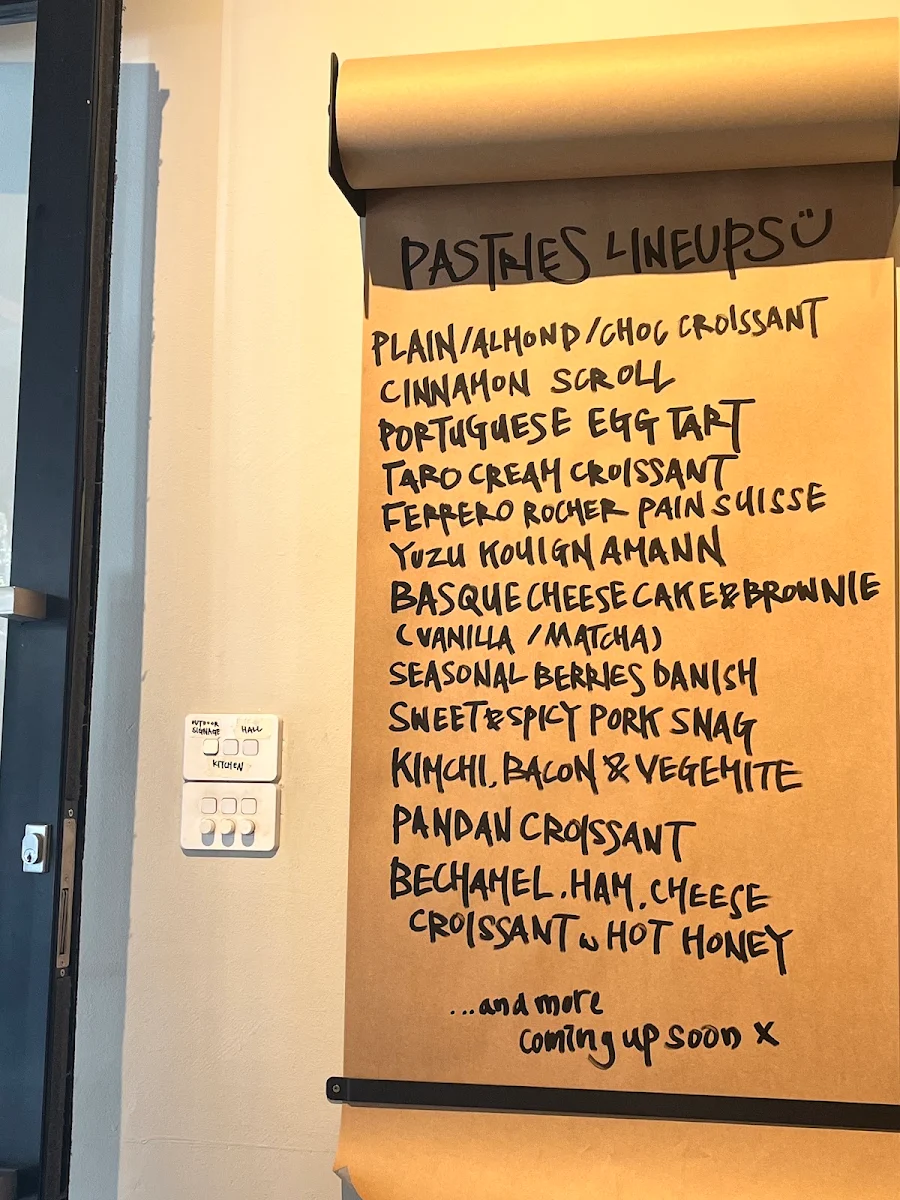 PASTRIES LINEUPS Ü
PLAIN/ALMOND/CHOC CROISSANT
CINNAMON SCROLL
PORTUGUESE EGG TART
TARO CREAM CROISSANT
FERRERO ROCHER PAIN SUISSE
YUZU KOUIGN AMANN
BASQUE CHEESE CAKE & BROWNIE
(VANILLA / MATCHA)
SEASONAL BERRIES DANISH
SWEET & SPICY PORK SNAG
KIMCHI, BACON & VEGEMITE
PANDAN CROISSANT
BECHAMEL, HAM, CHEESE
CROISSANT w HOT HONEY
...and more
coming up soon x
OUTDOOR
SIGNAGE HALL
KITCHEN